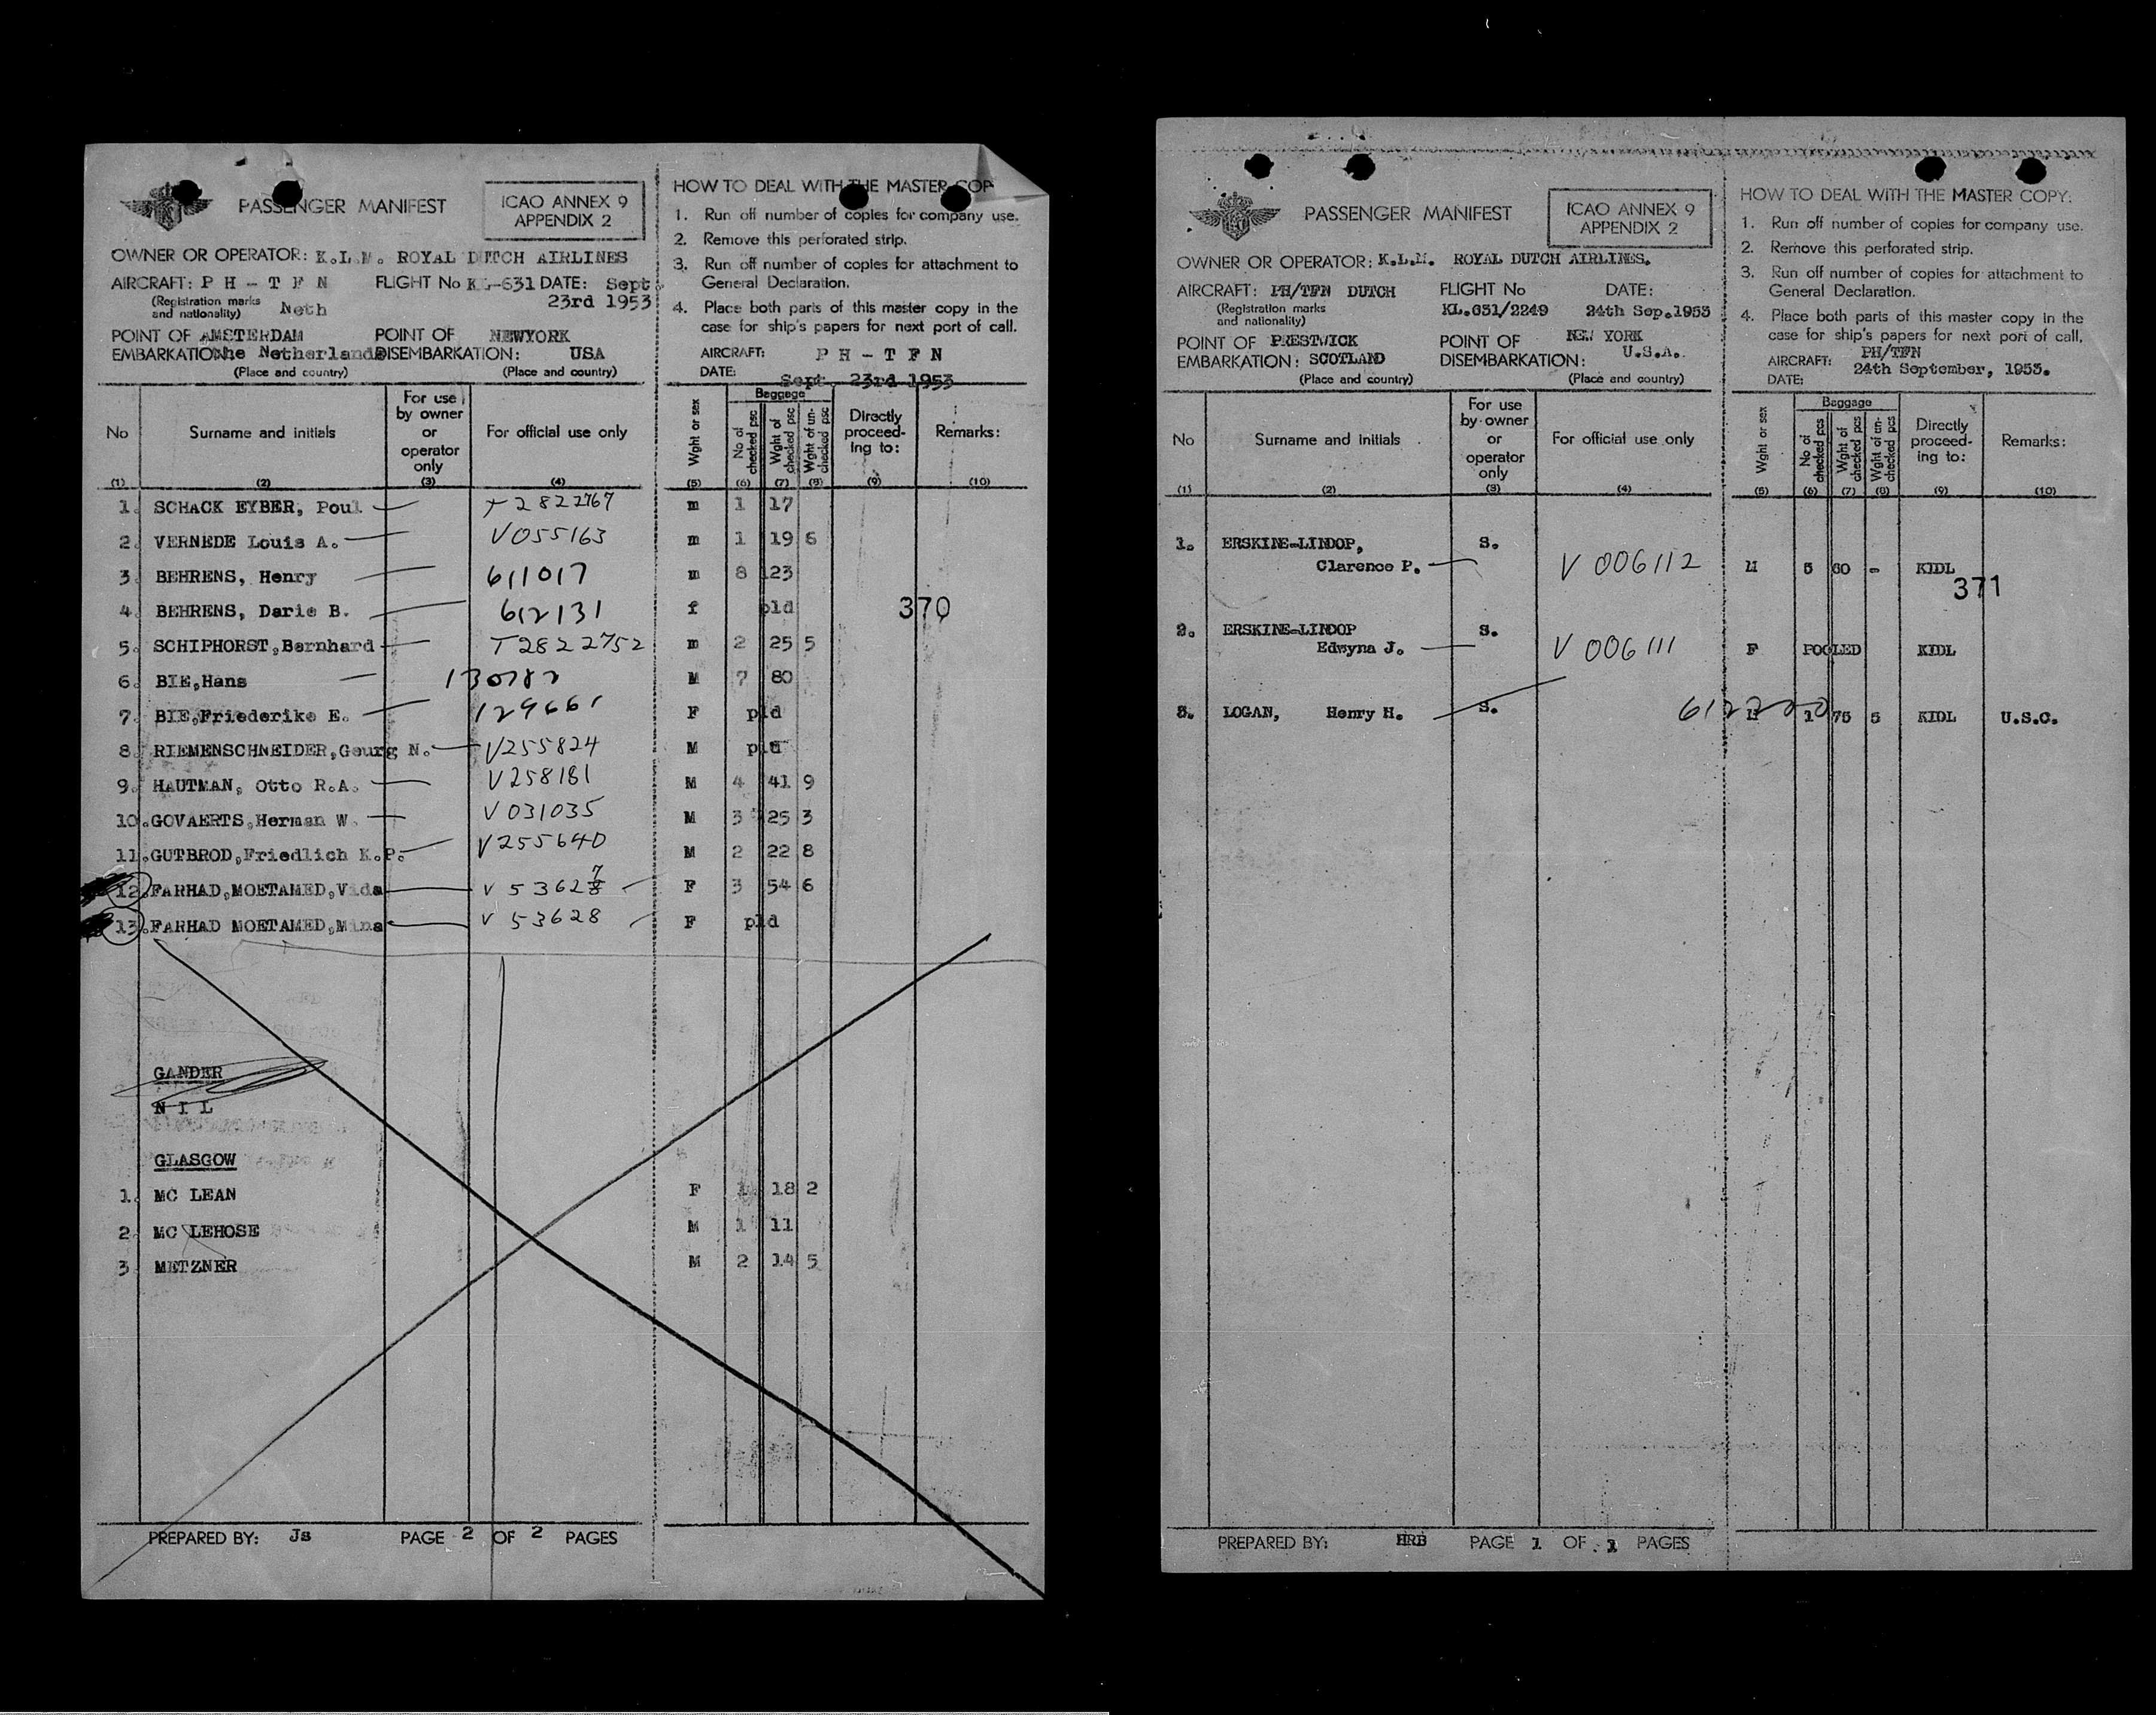 PASSENGER MANIFEST
ICAO ANNEX 9
APPENDIX 2
OWNER OR OPERATOR: K.L.M. ROYAL DUTCH AIRLINES
AIRCRAFT: P H - T F N FLIGHT No KL-631 DATE: Sept
(Registration marks and nationality) Neth 23rd 1953
POINT OF EMBARKATION: AMSTERDAM the Netherlands POINT OF DISEMBARKATION: NEWYORK USA
(Place and country) (Place and country)
HOW TO DEAL WITH THE MASTER COP
1. Run off number of copies for company use.
2. Remove this perforated strip.
3. Run off number of copies for attachment to
General Declaration.
4. Place both parts of this master copy in the
case for ship's papers for next port of call.
AIRCRAFT: P H - T F N
DATE: Sept. 23rd 1953
No Surname and initials For use by owner or operator only For official use only Wght or sex Baggage No of checked psc Wght of checked psc Wght of un-checked psc Directly proceed-ing to: Remarks:
(1) (2) (3) (4) (5) (6) (7) (8) (9) (10)
1. SCHACK EYBER, Poul T2822767 m 1 17
2. VERNEDE Louis A. V055163 m 1 19 6
3. BEHRENS, Henry 611017 m 8 123
4. BEHRENS, Darie B. 612131 f pld 370
5. SCHIPHORST,Bernhard T2822752 m 2 25 5
6. BIE,Hans M 7 80
7. BIE,Friederike E. 129661 F pld
8. RIEMENSCHNEIDER,Georg N. V255824 M pld
9. HAUTMAN, Otto R.A. V258181 M 4 41 9
10.GOVAERTS,Herman W. V031035 M 3 25 3
11.GUTBROD,Friedlich K.P. V255640 M 2 22 8
12.FARHAD,MOETAMED,Vida V 53627 F 3 54 6
13.FARHAD MOETAMED,Mina V 53628 F pld
GANDER
N I L
GLASGOW
1. MC LEAN F 1 18 2
2. MC LEHOSE M 1 11
3. METZNER M 2 14 5
PREPARED BY: Js PAGE 2 OF 2 PAGES
PASSENGER MANIFEST
ICAO ANNEX 9
APPENDIX 2
OWNER OR OPERATOR: K.L.M. ROYAL DUTCH AIRLINES.
AIRCRAFT: PH/TFN DUTCH FLIGHT No DATE:
(Registration marks and nationality) KL.631/2249 24th Sep.1953
POINT OF EMBARKATION: PRESTWICK SCOTLAND POINT OF DISEMBARKATION: NEW YORK U.S.A.
(Place and country) (Place and country)
HOW TO DEAL WITH THE MASTER COPY:
1. Run off number of copies for company use.
2. Remove this perforated strip.
3. Run off number of copies for attachment to
General Declaration.
4. Place both parts of this master copy in the
case for ship's papers for next port of call.
AIRCRAFT: PH/TFN
DATE: 24th September, 1953.
No Surname and initials For use by owner or operator only For official use only Wght or sex Baggage No of checked pcs Wght of checked pcs Wght of un-checked pcs Directly proceed-ing to: Remarks:
(1) (2) (3) (4) (5) (6) (7) (8) (9) (10)
1. ERSKINE-LINDOP, S.
Clarence P. V 006112 M 5 60 - KIDL
371
2. ERSKINE-LINDOP S.
Edwyna J. V 006111 F POOLED KIDL
3. LOGAN, Henry H. S. M 1 75 5 KIDL U.S.C.
PREPARED BY: HRB PAGE 1 OF 1 PAGES